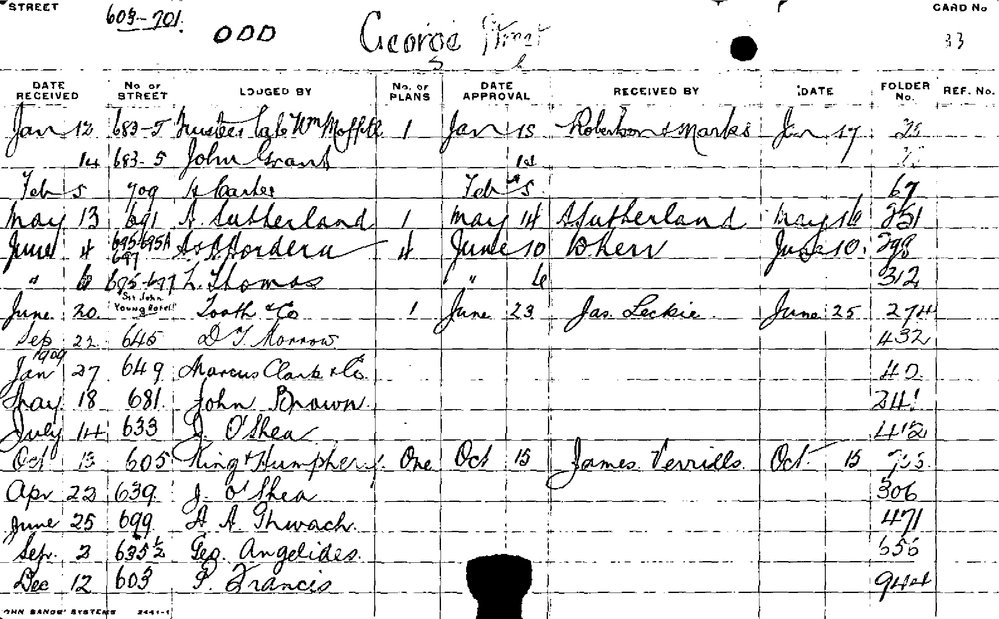 STREET 603-701. ODD George Street CARD No 33
DATE RECEIVED No. OF STREET LODGED BY No. OF PLANS DATE APPROVAL RECEIVED BY DATE FOLDER No. REF. No.
Jan 12 683-5 Trustees Wm Moffitt 1 Jan 15 Robertson & Marks Jan 17
14 683-5 John Grant
Feb 5 709 Carter Feb 5 67
May 13 691 A. Sutherland 1 May 14 A Sutherland May 16 251
June 4 695-695A 697 Hordern 4 June 10 June 10 298
" 6 695-697 L. Thomas " 6 312
June 20 Sir John Young Hotel Tooth & Co 1 June 23 Jas. Leckie June 25 274
Sep 22 645 D T Morrow 432
1909
Jan 27 649 Marcus Clark & Co.
May 18 681 John Brown 241
July 14 633 J. O'Shea 412
Oct 13 605 King & Humphery One Oct 15 James Verrills Oct. 15
Apr 22 639 J. O'Shea 306
June 25 699 A A. 471
Sep. 2 635½ Geo. Angelides 656
Dec 12 603 P. Francis 944
JOHN SANDS' SYSTEMS 2441-1